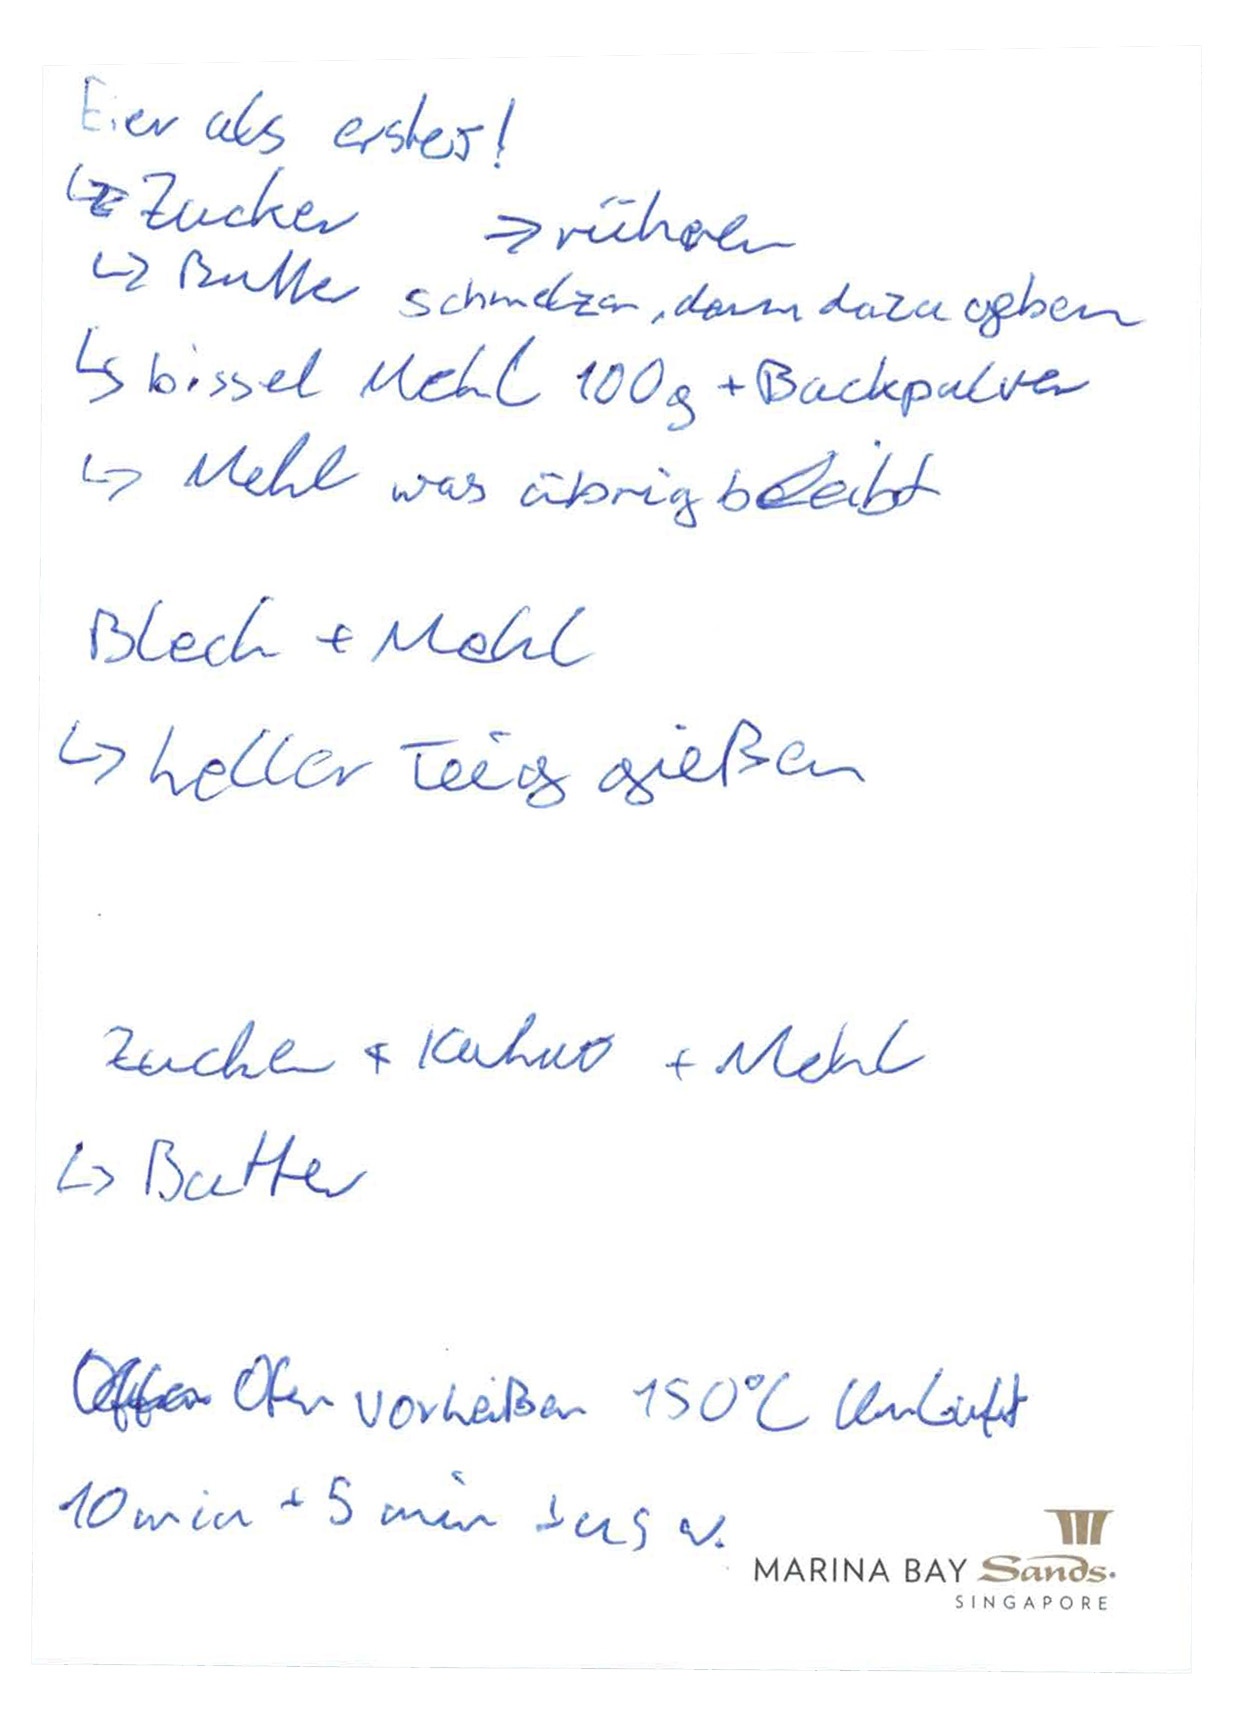 Eier als erstes!
↳ Zucker → rühren
↳ Butter schmelzen, dann dazu geben
↳ bissel Mehl 100g + Backpulver
↳ Mehl was übrig bleibt
Blech + Mehl
↳ heller Teig gießen
Zucker + Kakao + Mehl
↳ Butter
Ofen vorheißen 150°C Umluft
10 min + 5 min usw.
MARINA BAY Sands.
SINGAPORE